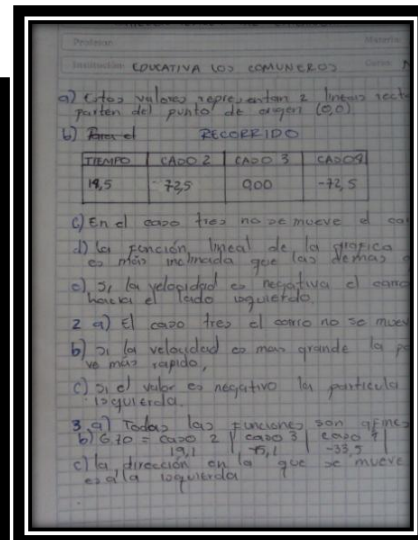 Profesor: Materia:
Institución: EDUCATIVA LOS COMUNEROS Curso:
a) Estos valores representan 2 lineas rect
parten del punto de origen (0,0)
b) RECORRIDO
TIEMPO CASO 2 CASO 3 CASO 4
14,5 72,5 0,00 -72,5
c) En el caso tres no se mueve el ca
d) la función lineal de la grafica
es más inclinada que las demas
e) Si la velocidad es negativa el
hacia el lado izquierdo.
2 a) El caso tres el carro no se muev
b) si la velocidad es mas grande la p
ve más rapido,
c) si el valor es negativo la particula
izquierda.
3. a) Todas las funciones son afines
b) 6.70 = caso 2 | caso 3 | caso 4
19,1 -33,5
c) la dirección en la que se mueve
es a la izquierda